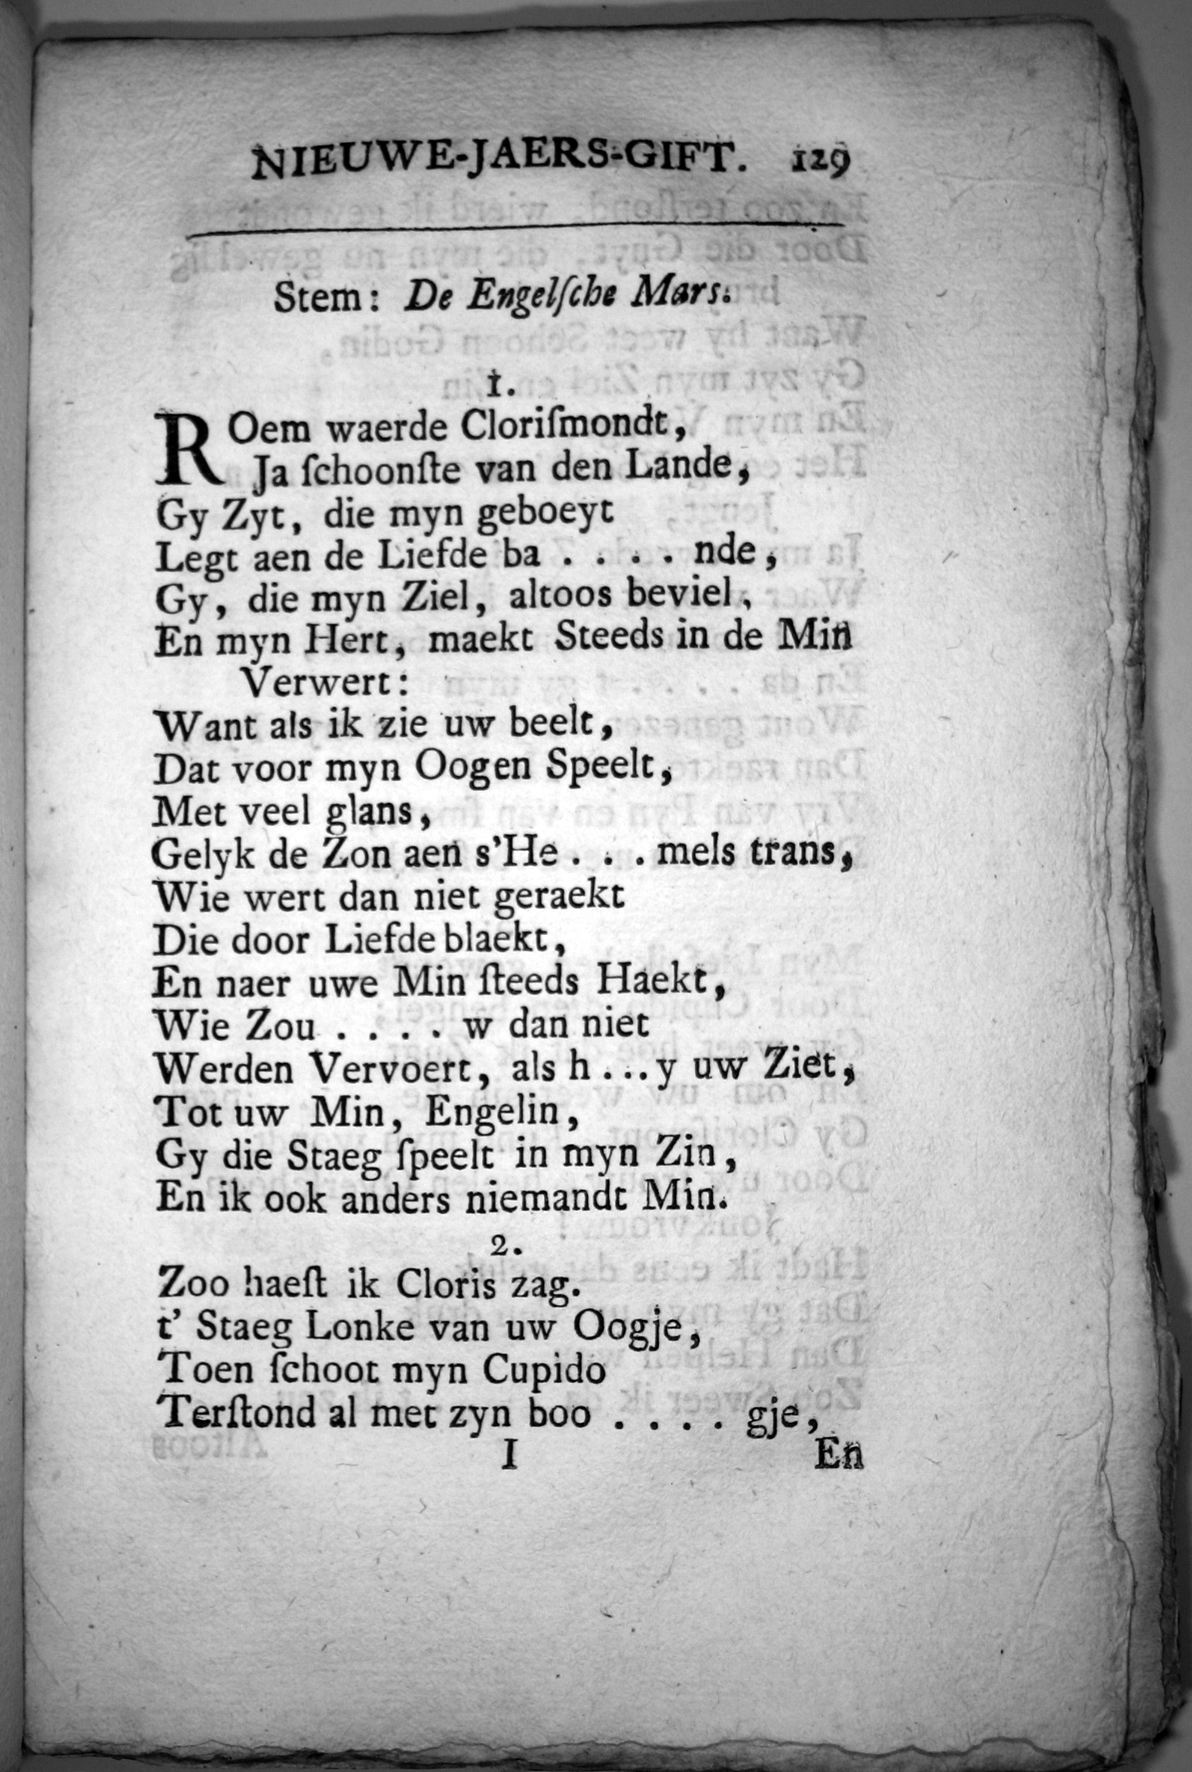 NIEUWE-JAERS-GIFT. 129
Stem: De Engelſche Mars.
1.
ROem waerde Cloriſmondt,
Ja ſchoonſte van den Lande,
Gy Zyt, die myn geboeyt
Legt aen de Liefde ba . . . . nde,
Gy, die myn Ziel, altoos beviel,
En myn Hert, maekt Steeds in de Min
Verwert:
Want als ik zie uw beelt,
Dat voor myn Oogen Speelt,
Met veel glans,
Gelyk de Zon aen s'He . . . mels trans,
Wie wert dan niet geraekt
Die door Liefde blaekt,
En naer uwe Min ſteeds Haekt,
Wie Zou . . . . w dan niet
Werden Vervoert, als h . . . y uw Ziet,
Tot uw Min, Engelin,
Gy die Staeg ſpeelt in myn Zin,
En ik ook anders niemandt Min.
2.
Zoo haeſt ik Cloris zag.
t' Staeg Lonke van uw Oogje,
Toen ſchoot myn Cupido
Terſtond al met zyn boo . . . . gje,
I En